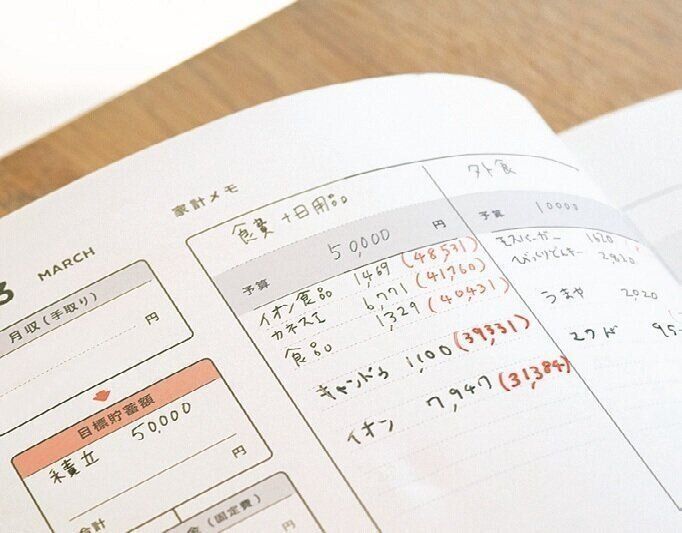 家計メモ
3 MARCH
月収(手取り)
円
目標貯蓄額
積立 50,000
円
合計
金(固定費)
円
食費+日用品
予算 50,000 円
イオン食品 1,469 (48,531)
カネスエ 6,771 (41,760)
食品 1,329 (40,431)
キャンドゥ 1,100 (39,331)
イオン 7,947 (31,384)
外食
予算 10000
モスバーガー 1620
びっくりどんキー 2920
うまや 2,020
マクド 95